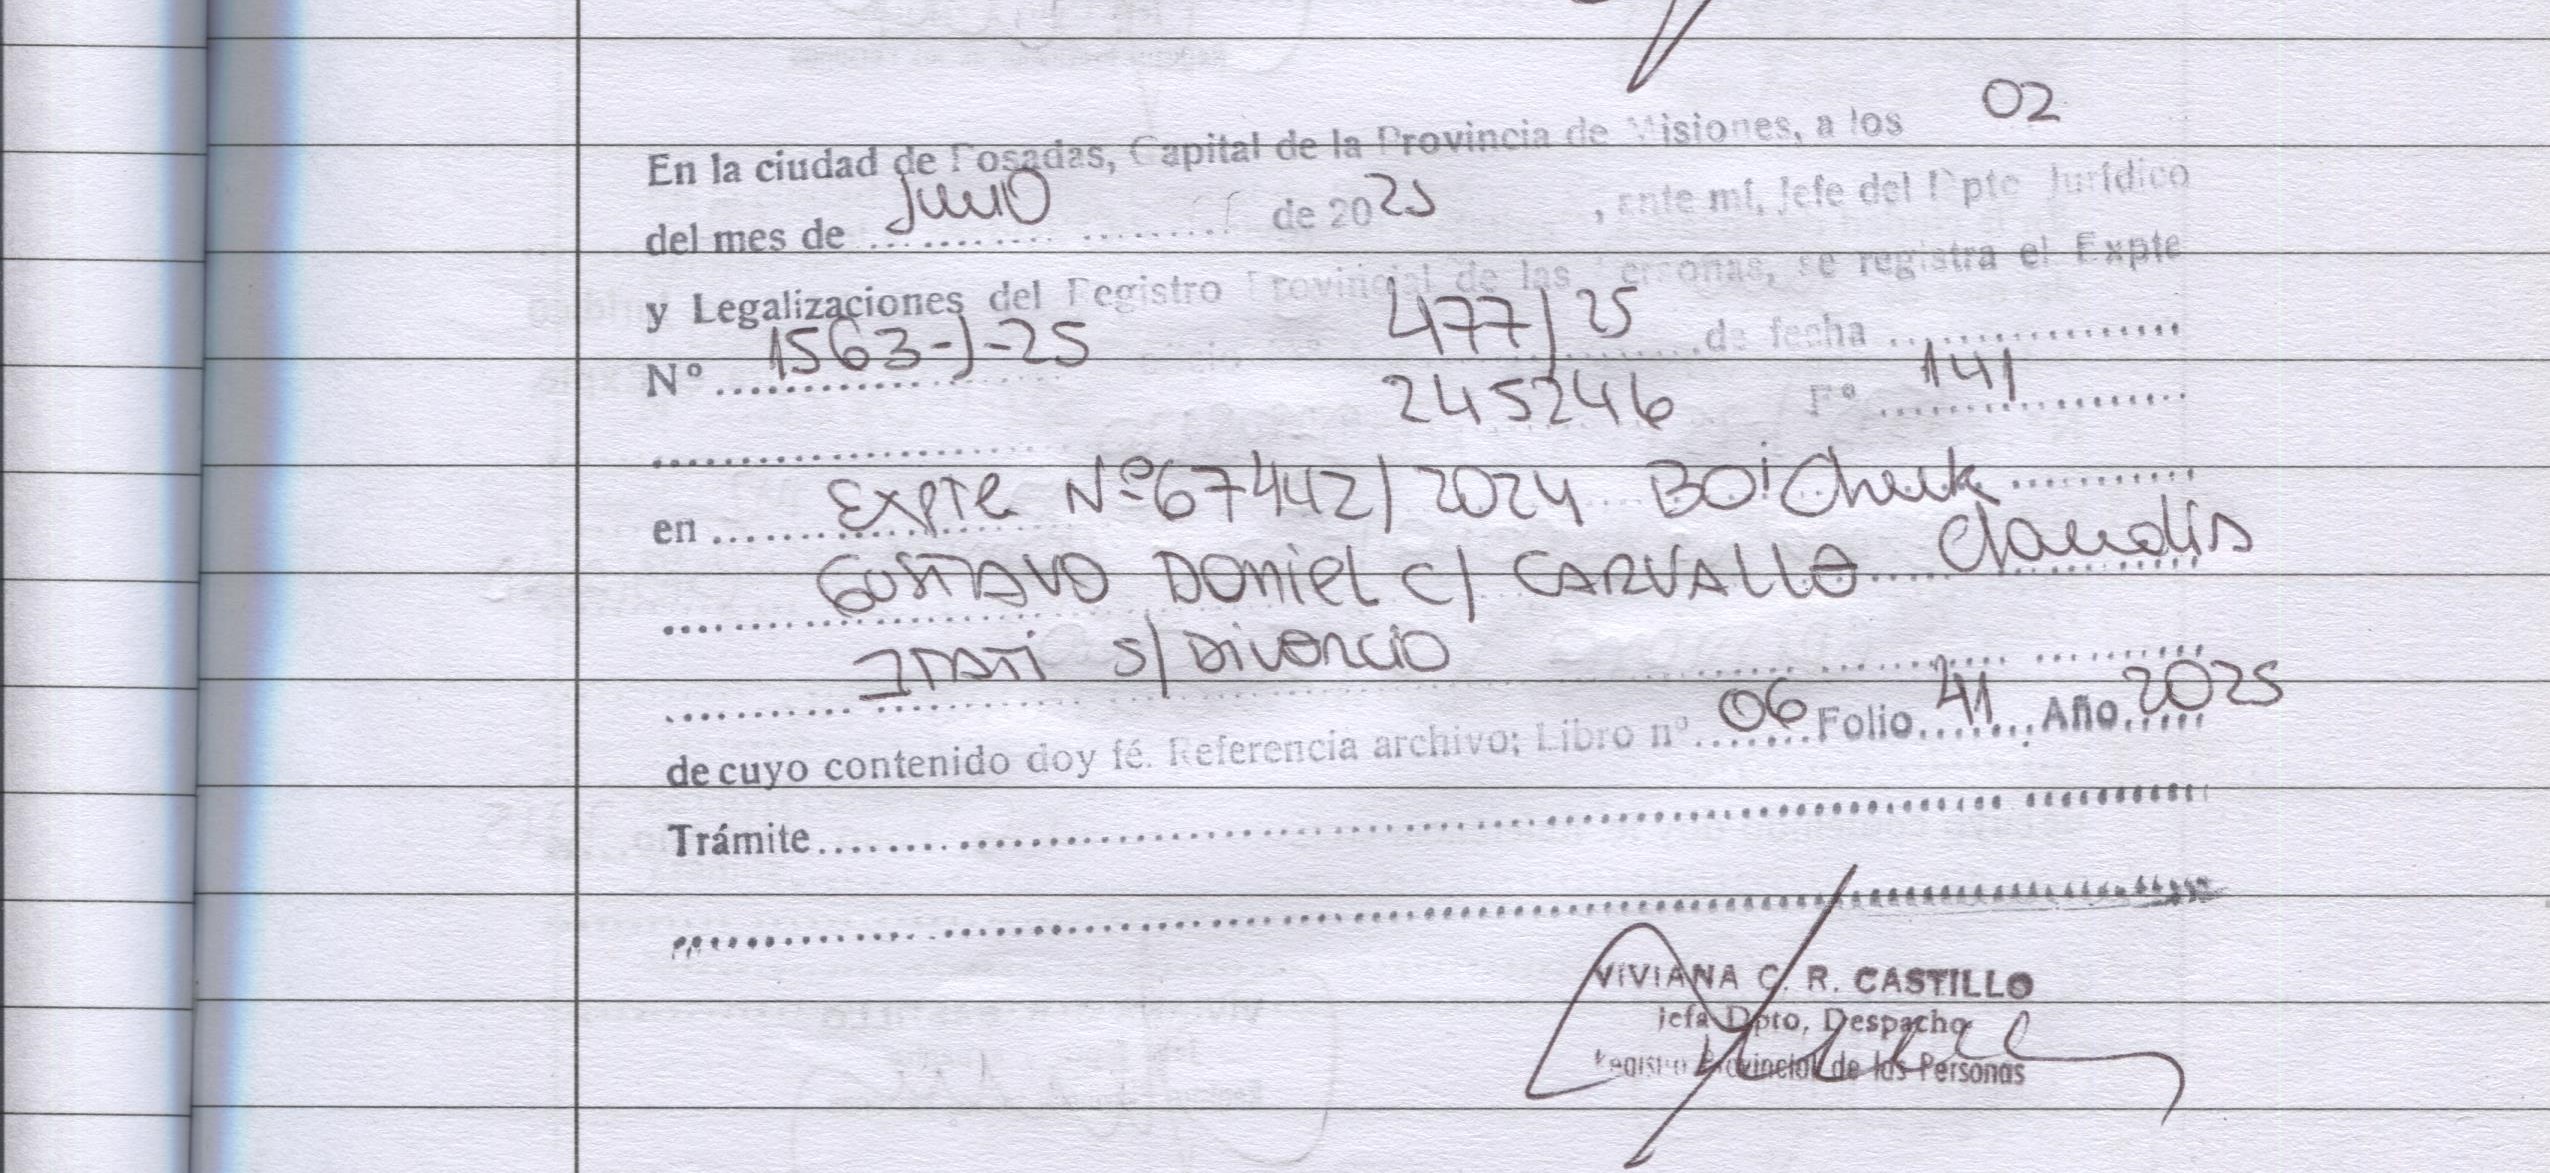 En la ciudad de Posadas, Capital de la Provincia de Misiones, a los 02
del mes de Junio de 2025, ante mí, Jefe del Dpto Jurídico
y Legalizaciones del Registro Provincial de las Personas, se registra el Expte
Nº 1563-J-25 477/25 de fecha
245246 Fº 141
en Expte Nº 67442/2024 BOiCheuk
GUSTAVO DANiEL C/ CARVALLO Claudia
ITATI S/ DIVORCIO
de cuyo contenido doy fé. Referencia archivo; Libro nº 06 Folio 41 Año 2025
Trámite
VIVIANA C. R. CASTILLO
Jefa Dpto, Despacho
Registro Provincial de las Personas